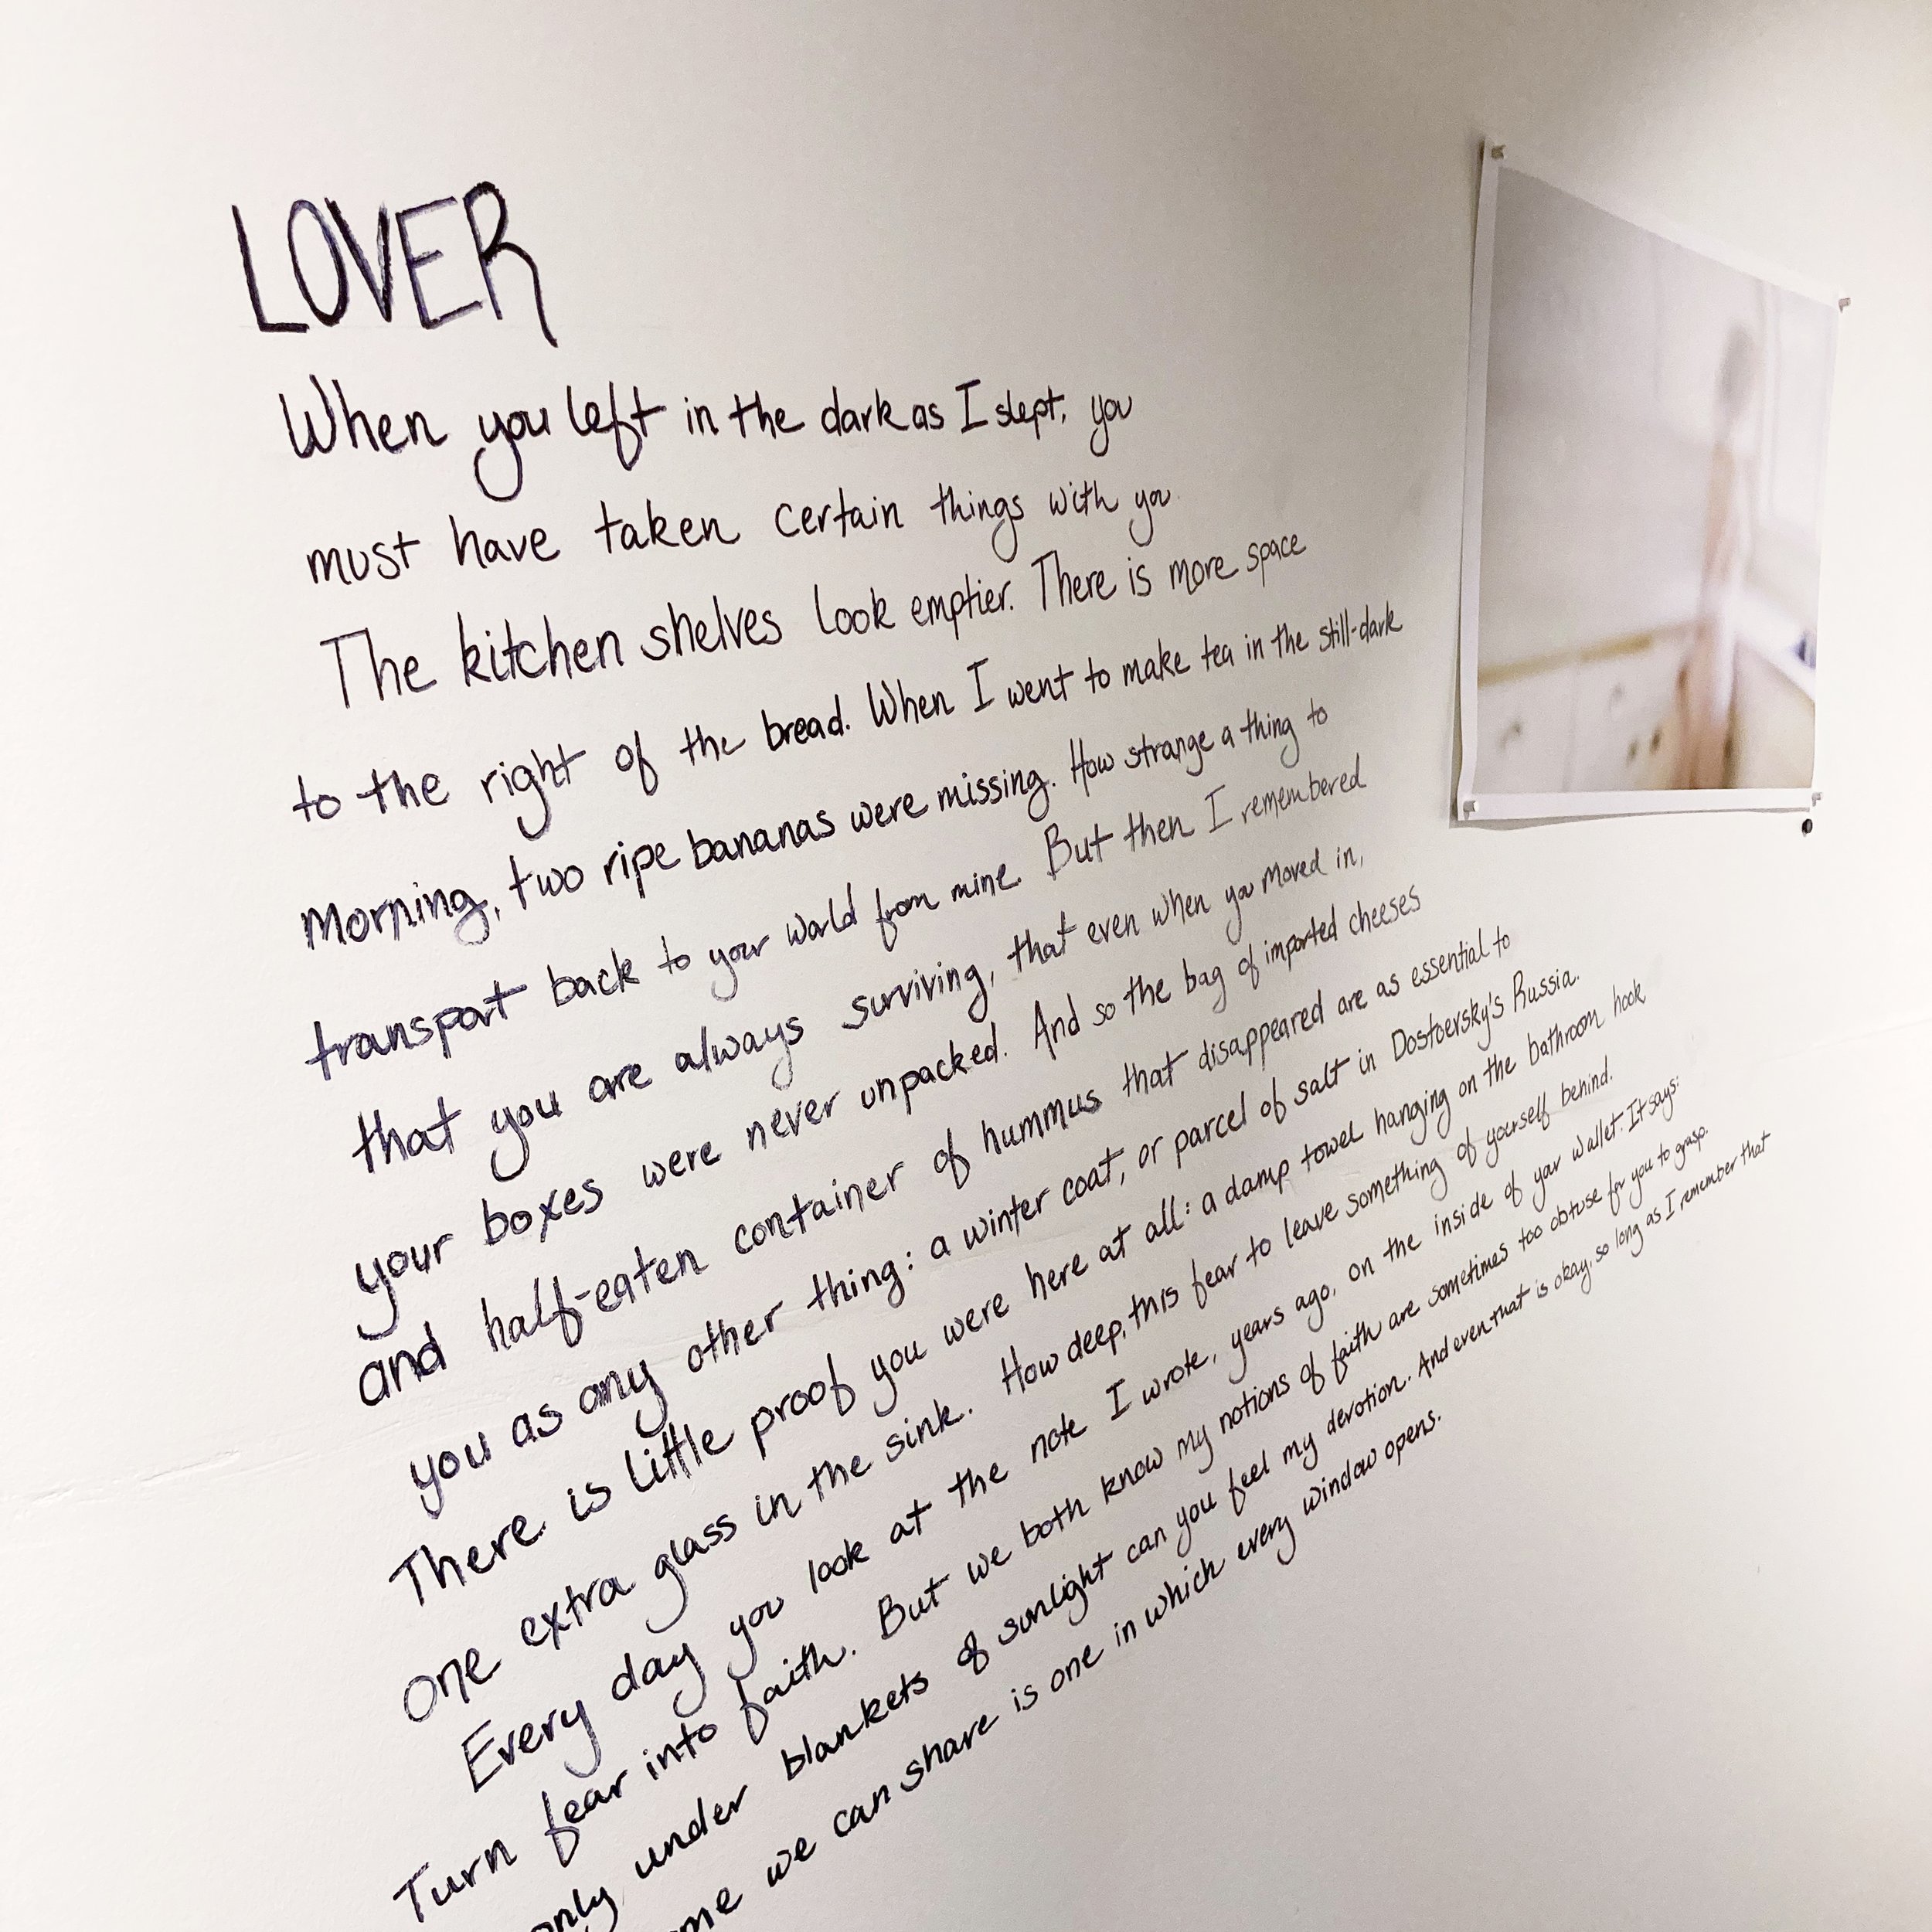 LOVER
When you left in the dark as I slept, you
must have taken certain things with you.
The kitchen shelves look emptier. There is more space
to the right of the bread. When I went to make tea in the still-dark
morning, two ripe bananas were missing. How strange a thing to
transport back to your world from mine. But then I remembered
that you are always surviving, that even when you moved in,
your boxes were never unpacked. And so the bag of imported cheeses
and half-eaten container of hummus that disappeared are as essential to
you as any other thing: a winter coat, or parcel of salt in Dostoersky's Russia.
There is little proof you were here at all: a damp towel hanging on the bathroom hook
one extra glass in the sink. How deep, this fear to leave something of yourself behind.
Every day you look at the note I wrote, years ago, on the inside of your wallet. It says:
Turn fear into faith. But we both know my notions of faith are sometimes too obtuse for you to grasp.
only under blankets of sunlight can you feel my devotion. And even that is okay, so long as I remember that
we can share is one in which every window opens.